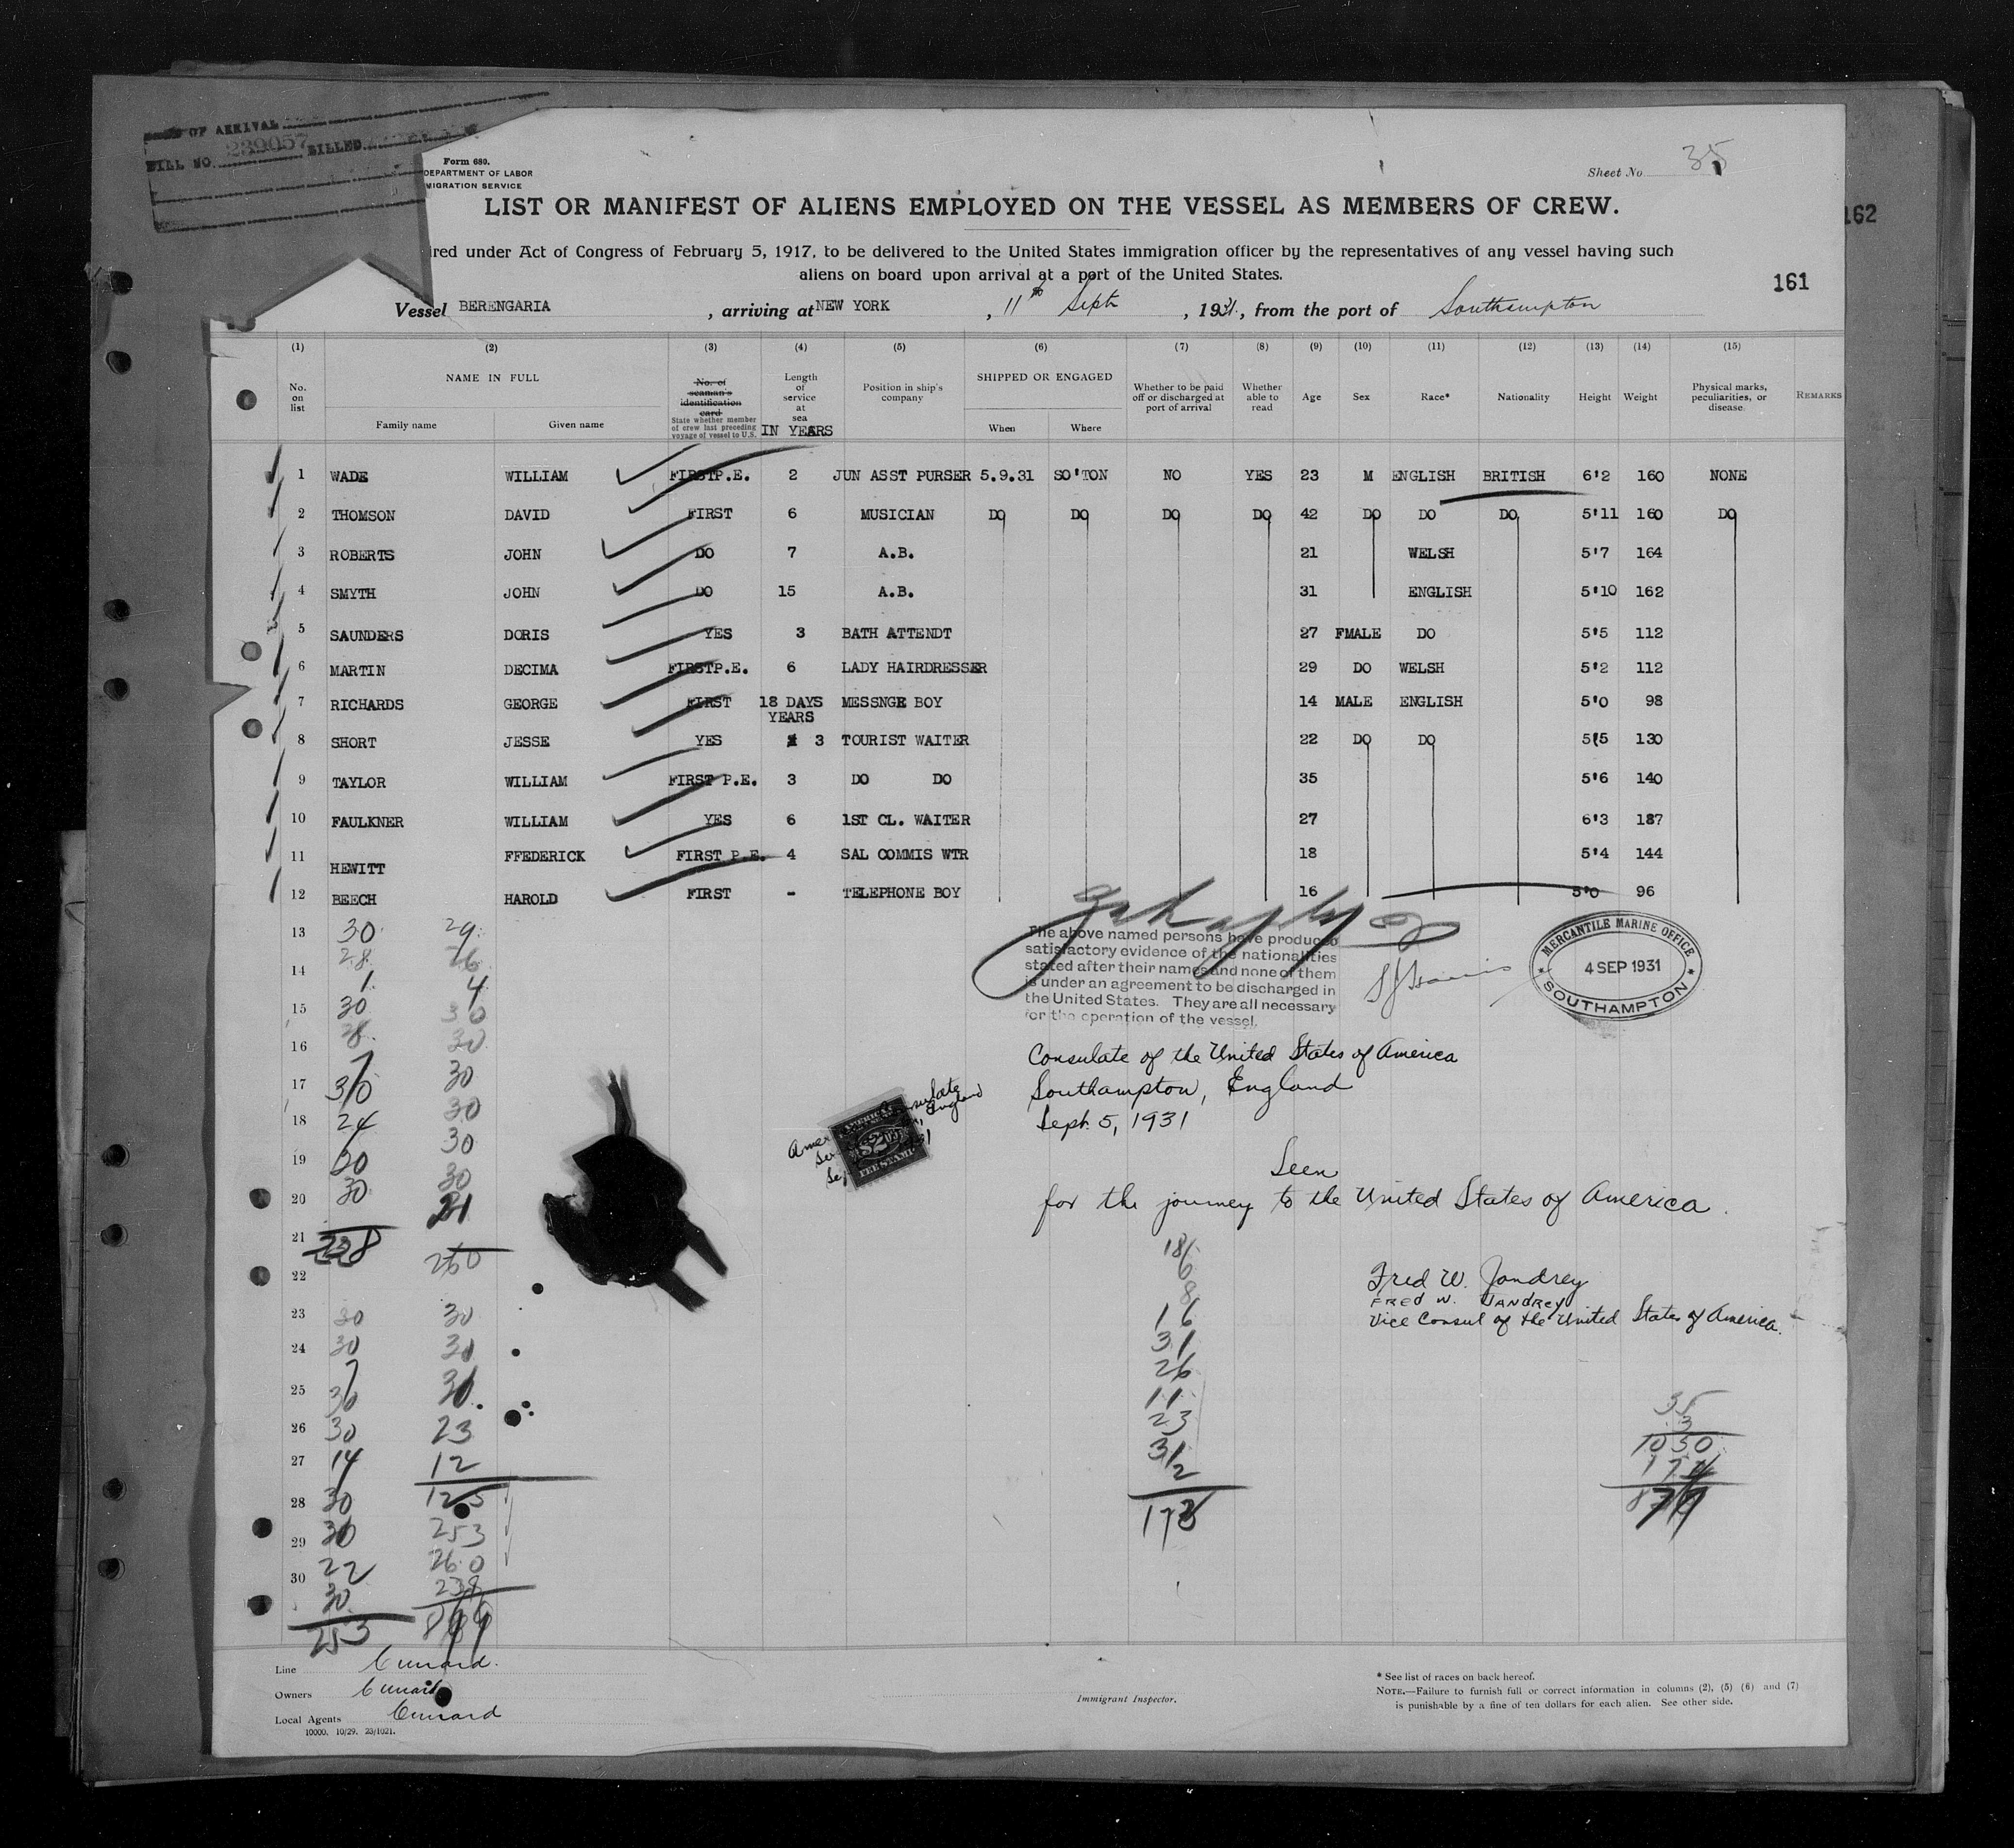 OF ARRIVAL
BILL NO. 239057 BILLED
Form 689.
DEPARTMENT OF LABOR
MIGRATION SERVICE
Sheet No. 35
LIST OR MANIFEST OF ALIENS EMPLOYED ON THE VESSEL AS MEMBERS OF CREW.
ired under Act of Congress of February 5, 1917, to be delivered to the United States immigration officer by the representatives of any vessel having such
aliens on board upon arrival at a port of the United States.
162
161
Vessel BERENGARIA, arriving at NEW YORK, 11th Sept, 1931, from the port of Southampton
(1) (2) (3) (4) (5) (6) (7) (8) (9) (10) (11) (12) (13) (14) (15)
No. on list
NAME IN FULL
Family name Given name
No. of seaman's identification card
State whether member of crew last preceding voyage of vessel to U.S.
Length of service at sea
IN YEARS
Position in ship's company
SHIPPED OR ENGAGED
When Where
Whether to be paid off or discharged at port of arrival
Whether able to read
Age
Sex
Race*
Nationality
Height
Weight
Physical marks, peculiarities, or disease
REMARKS
1 WADE WILLIAM FIRSTP.E. 2 JUN ASST PURSER 5.9.31 SO'TON NO YES 23 M ENGLISH BRITISH 6'2 160 NONE
2 THOMSON DAVID FIRST 6 MUSICIAN DO DO DO DO 42 DO DO DO 5'11 160 DO
3 ROBERTS JOHN DO 7 A.B. 21 WELSH 5'7 164
4 SMYTH JOHN DO 15 A.B. 31 ENGLISH 5'10 162
5 SAUNDERS DORIS YES 3 BATH ATTENDT 27 FMALE DO 5'5 112
6 MARTIN DECIMA FIRSTP.E. 6 LADY HAIRDRESSER 29 DO WELSH 5'2 112
7 RICHARDS GEORGE FIRST 18 DAYS MESSNGE BOY 14 MALE ENGLISH 5'0 98
YEARS
8 SHORT JESSE YES 3 TOURIST WAITER 22 DO DO 5(5 130
9 TAYLOR WILLIAM FIRST P.E. 3 DO DO 35 5'6 140
10 FAULKNER WILLIAM YES 6 1ST CL. WAITER 27 6'3 187
11 HEWITT FFEDERICK FIRST P.E. 4 SAL COMMIS WTR 18 5'4 144
12 BEECH HAROLD FIRST - TELEPHONE BOY 16 5'0 96
The above named persons have produced
satisfactory evidence of the nationalities
stated after their names and none of them
is under an agreement to be discharged in
the United States. They are all necessary
for the operation of the vessel.
MERCANTILE MARINE OFFICE
4 SEP 1931
SOUTHAMPTON
Consulate of the United States of America
Southampton, England
Sept. 5, 1931
Seen
for the journey to the United States of America.
Fred W. Jandrey
FRED W. JANDREY
Vice Consul of the United States of America.
AMERICAN
$2.00
FEE STAMP
13 30 29
28 26
14 1 4
15 30 30
28 30
16
17 30 30
30
18 24 30
19 30
20 30 21
21 238
22 260
23 30 30
24 30 30
25 30
26 30 23
27 14 12
28 30 125
29 30 253
22 260
30 30 238
253
18
6
8
16
31
26
11
23
31
2
173
35
3
1050
Line Cunard.
Owners Cunard
Local Agents Cunard
10000. 10/29. 23/1021.
Immigrant Inspector.
* See list of races on back hereof.
NOTE.—Failure to furnish full or correct information in columns (2), (5) (6) and (7)
is punishable by a fine of ten dollars for each alien. See other side.